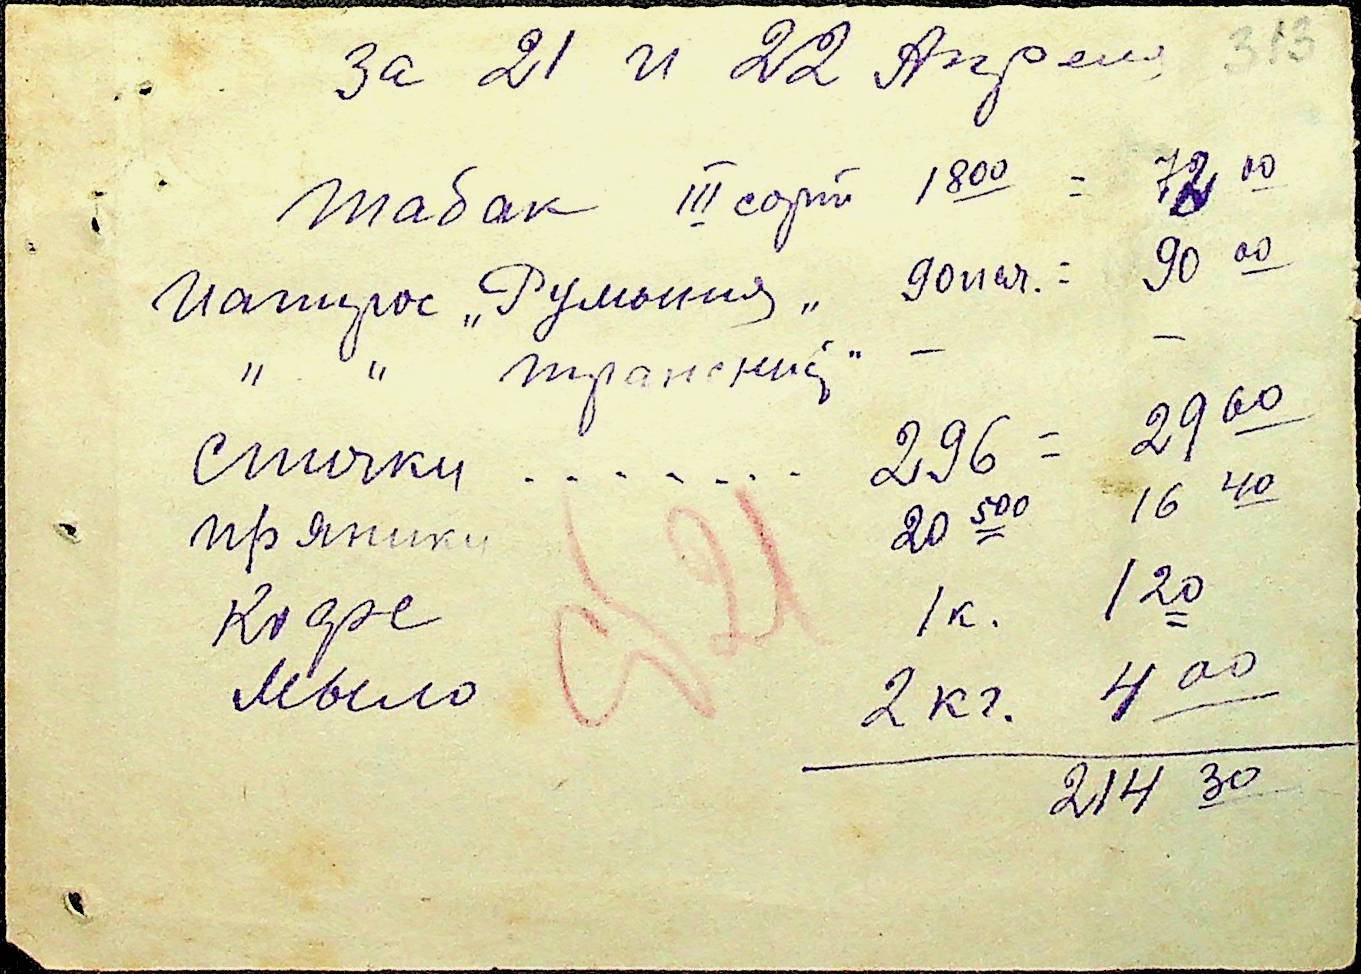 313
За 21 и 22 Апреля
Табак III сорт 1800 = 72 00
Папирос „Румыния„ 90 пач. = 90 00
" " — —
Спички . . . . . . . 296 = 29 60
Пряники 20 500 16 40
Кофе 1 к. 1 20
Мыло 2 кг. 4 00
214 30
21